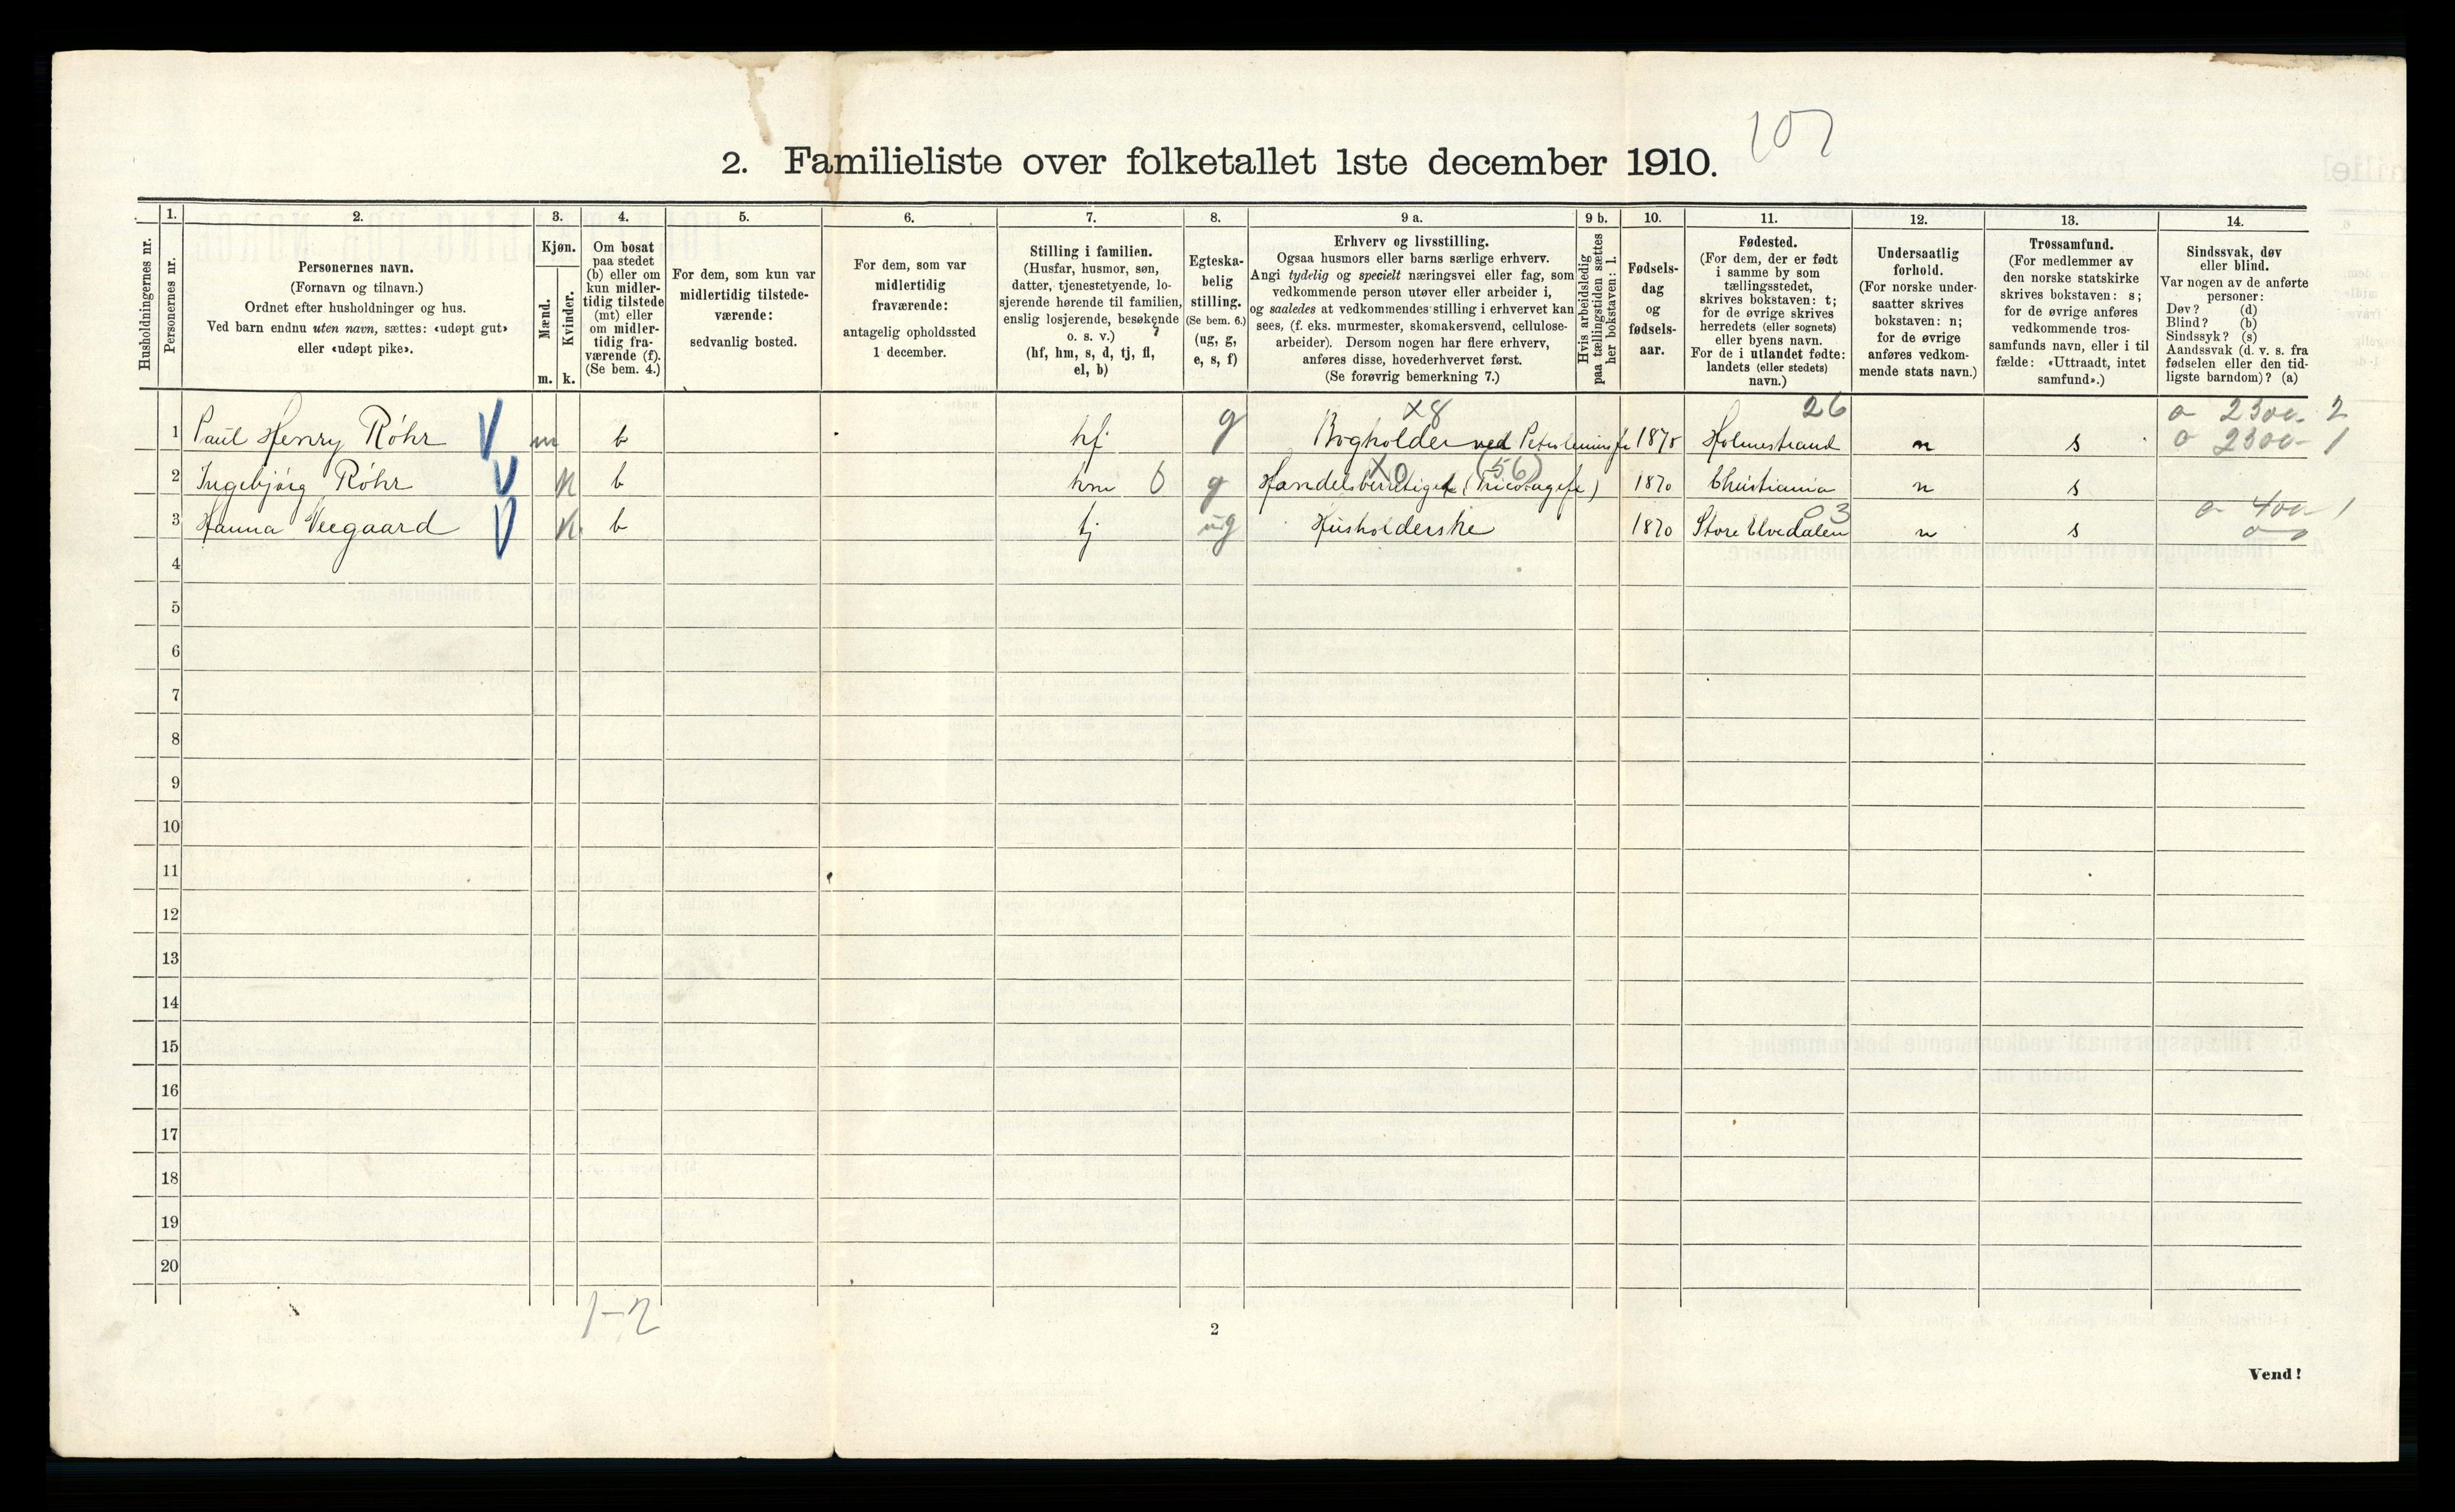 107
2. Familieliste over folketallet 1ste december 1910.
Husholdningernes nr.
1.
Personernes nr.
2.
Personernes navn.
(Fornavn og tilnavn.)
Ordnet efter husholdninger og hus.
Ved barn endnu uten navn, sættes: «udøpt gut»
eller «udøpt pike».
3.
Kjøn.
Mænd.
Kvinder.
m. k.
4.
Om bosat
paa stedet
(b) eller om
kun midler-
tidig tilstede
(mt) eller
om midler-
tidig fra-
værende (f).
(Se bem. 4.)
5.
For dem, som kun var
midlertidig tilstede-
værende:
sedvanlig bosted.
6.
For dem, som var
midlertidig
fraværende:
antagelig opholdssted
1 december.
7.
Stilling i familien.
(Husfar, husmor, søn,
datter, tjenestetyende, lo-
sjerende hørende til familien,
enslig losjerende, besøkende
o. s. v.)
(hf, hm, s, d, tj, fl,
el, b)
8.
Egteska-
belig
stilling.
(Se bem. 6.)
(ug, g,
e, s, f)
9 a.
Erhverv og livsstilling.
Ogsaa husmors eller barns særlige erhverv.
Angi tydelig og specielt næringsvei eller fag, som
vedkommende person utøver eller arbeider i,
og saaledes at vedkommendes stilling i erhvervet kan
sees, (f. eks. murmester, skomakersvend, cellulose-
arbeider). Dersom nogen har flere erhverv,
anføres disse, hovederhvervet først.
(Se forøvrig bemerkning 7.)
9 b.
Hvis arbeidsledig
paa tællingstiden sættes
her bokstaven: l.
10.
Fødsels-
dag
og
fødsels-
aar.
11.
Fødested.
(For dem, der er født
i samme by som
tællingsstedet,
skrives bokstaven: t;
for de øvrige skrives
herredets (eller sognets)
eller byens navn.
For de i utlandet fødte:
landets (eller stedets)
navn.)
12.
Undersaatlig
forhold.
(For norske under-
saatter skrives
bokstaven: n;
for de øvrige
anføres vedkom-
mende stats navn.)
13.
Trossamfund.
(For medlemmer av
den norske statskirke
skrives bokstaven: s;
for de øvrige anføres
vedkommende tros-
samfunds navn, eller i til
fælde: «Uttraadt, intet
samfund».)
14.
Sindssvak, døv
eller blind.
Var nogen av de anførte
personer:
Døv? (d)
Blind? (b)
Sindssyk? (s)
Aandssvak (d. v. s. fra
fødselen eller den tid-
ligste barndom)? (a)
x8 26 o 2300- 2
1 Paul Henry Röhr V m b hf g Bogholder ved 1875 Holmestrand n s o 2300- 1
x0 (56)
2 Ingebjørg Röhr V k b hm 6 g Handelsberettiget (Tricotagefr) 1870 Christiania n s
03 o 400- 1
3 Hanna Veegaard V k b tj ug Husholderske 1870 Store Elvedalen n s o 0
4
5
6
7
8
9
10
11
12
13
14
15
16
17
18
19
20
1-2
2
Vend!